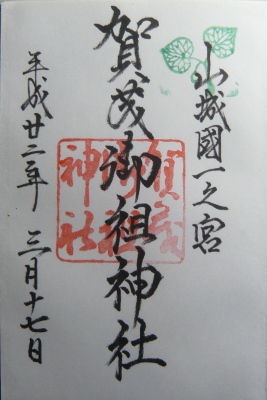 山城國一之宮
賀茂御祖神社
平成廿二年 三月十七日
賀茂
御祖
神社